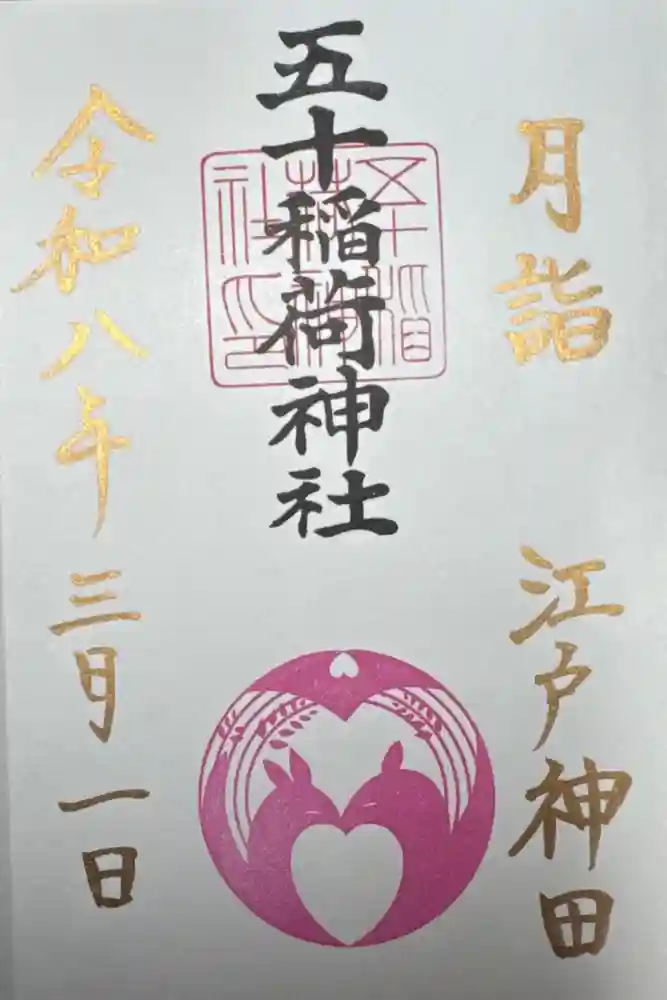 月詣
江戸神田
五十稲荷神社
五十稲荷神社之印
令和八年三月一日